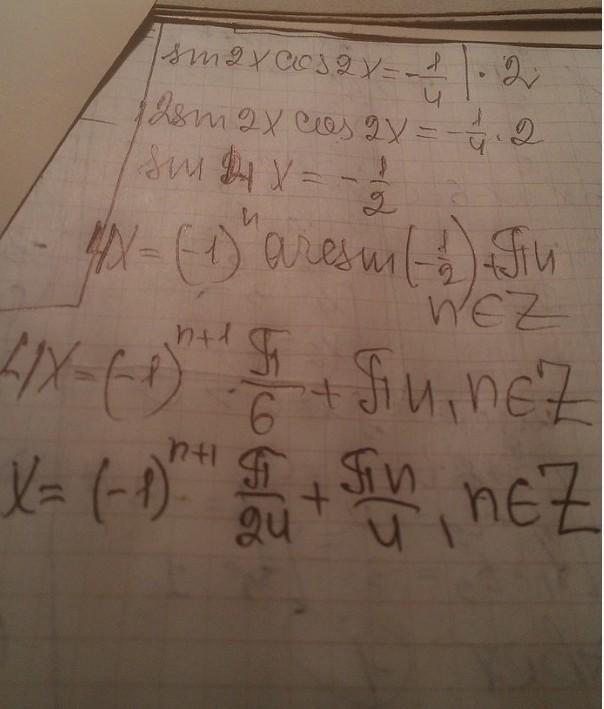 sin2x cos2x = -1/4 | · 2
2sin2x cos2x = -1/4 · 2
sin 4x = -1/2
4x = (-1)^n arcsin(-1/2) + πn
n∈Z
4x = (-1)^{n+1} · π/6 + πn, n∈Z
x = (-1)^{n+1} · π/24 + πn/4, n∈Z